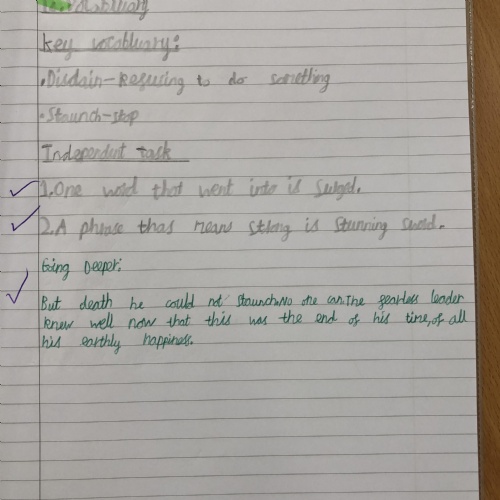 Key vocabluary:
• Disdain-Refusing to do something
• Staunch-stop
Independent Task
1. One word that went into is Surged.
2. A phrase thas means strong is Stunning Sword.
Going Deeper:
But death he could not staunch.No one can.The fearless leader
knew well now that this was the end of his time, of all
his earthly happiness.